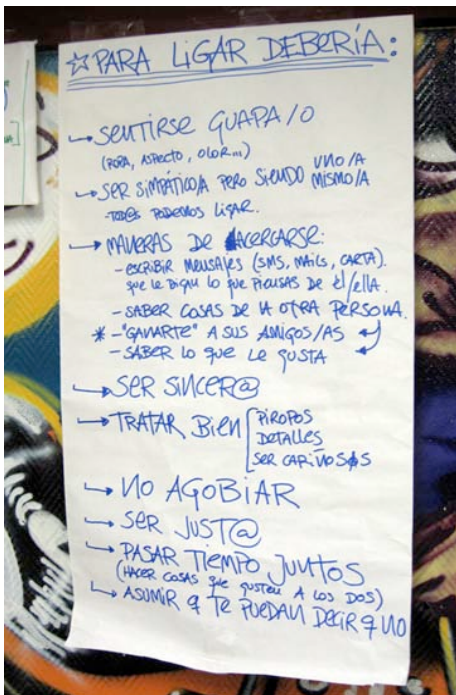 ☆PARA LIGAR DEBERÍA:
→SENTIRSE GUAPA/O
(ROPA, ASPECTO, OLOR...)
→SER SIMPÁTICO/A PERO SIENDO UNO/A MISMO/A
-TOD@S PODEMOS LIGAR.
→MANERAS DE ACERCARSE:
-ESCRIBIR MENSAJES (SMS, MAILS, CARTA).
QUE LE DIGAN LO QUE PIENSAS DE ÉL/ELLA.
-SABER COSAS DE LA OTRA PERSONA.
* -"GANARTE" A SUS AMIGOS/AS
-SABER LO QUE LE GUSTA
→SER SINCER@
→TRATAR BIEN
PIROPOS
DETALLES
SER CARIÑOSOS
→NO AGOBIAR
→SER JUST@
→PASAR TIEMPO JUNTOS
(HACER COSAS QUE GUSTEN A LOS DOS)
→ASUMIR q TE PUEDAN DECIR q NO